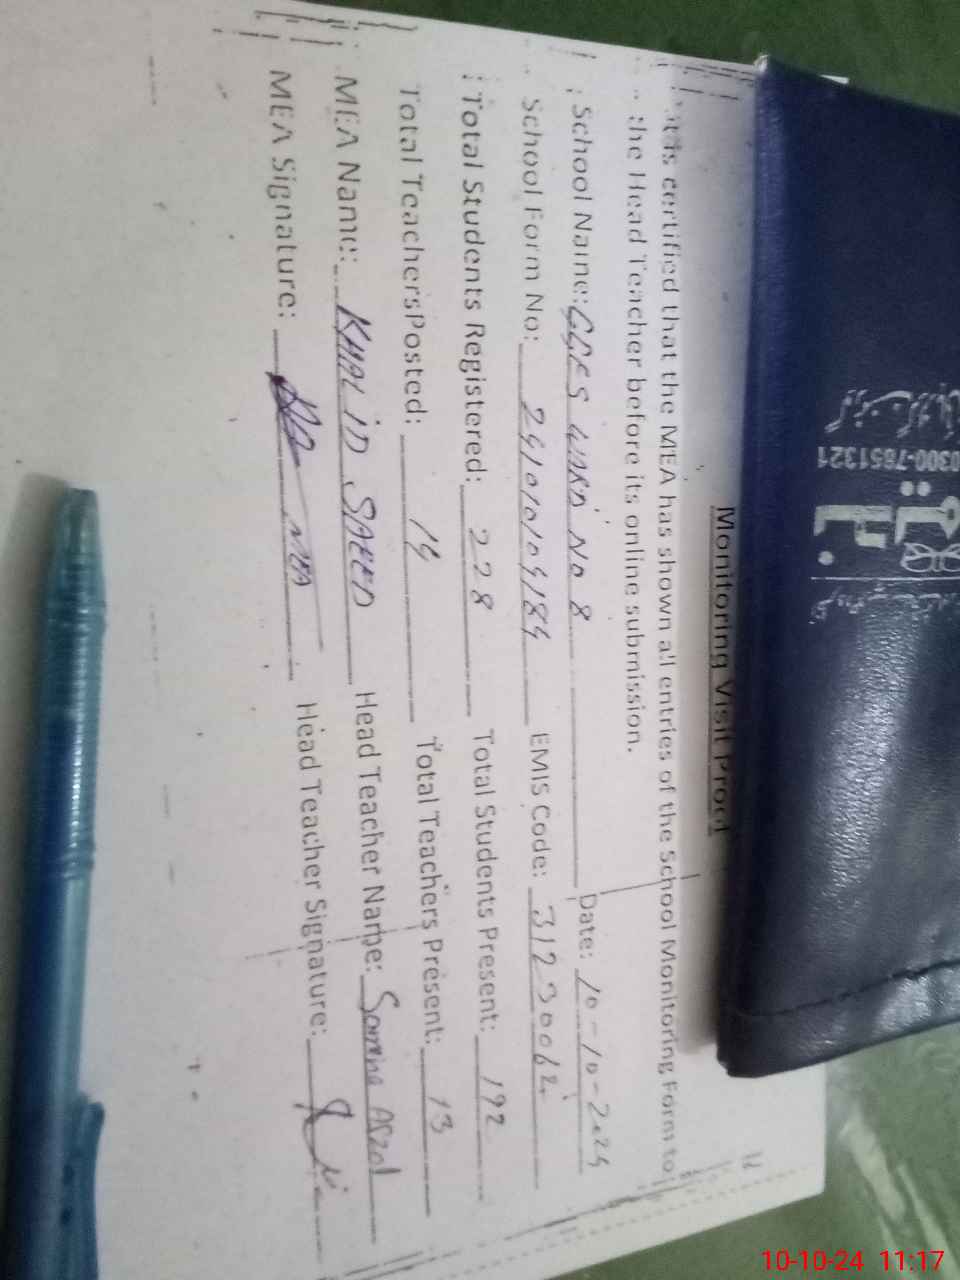 Monitoring Visit Proof
it is certified that the MEA has shown all entries of the School Monitoring Form to
the Head Teacher before its online submission.
School Name: GGES WARD NO 8 Date: 10-10-2024
School Form No: 241010104184 EMIS Code: 31230062
Total Students Registered: 228 Total Students Present: 192
Total Teachers Posted: 14 Total Teachers Present: 13
MEA Name: KHALID SAEED Head Teacher Name:
MEA Signature: MEA Head Teacher Signature:
0300-7651321
10-10-24 11:17